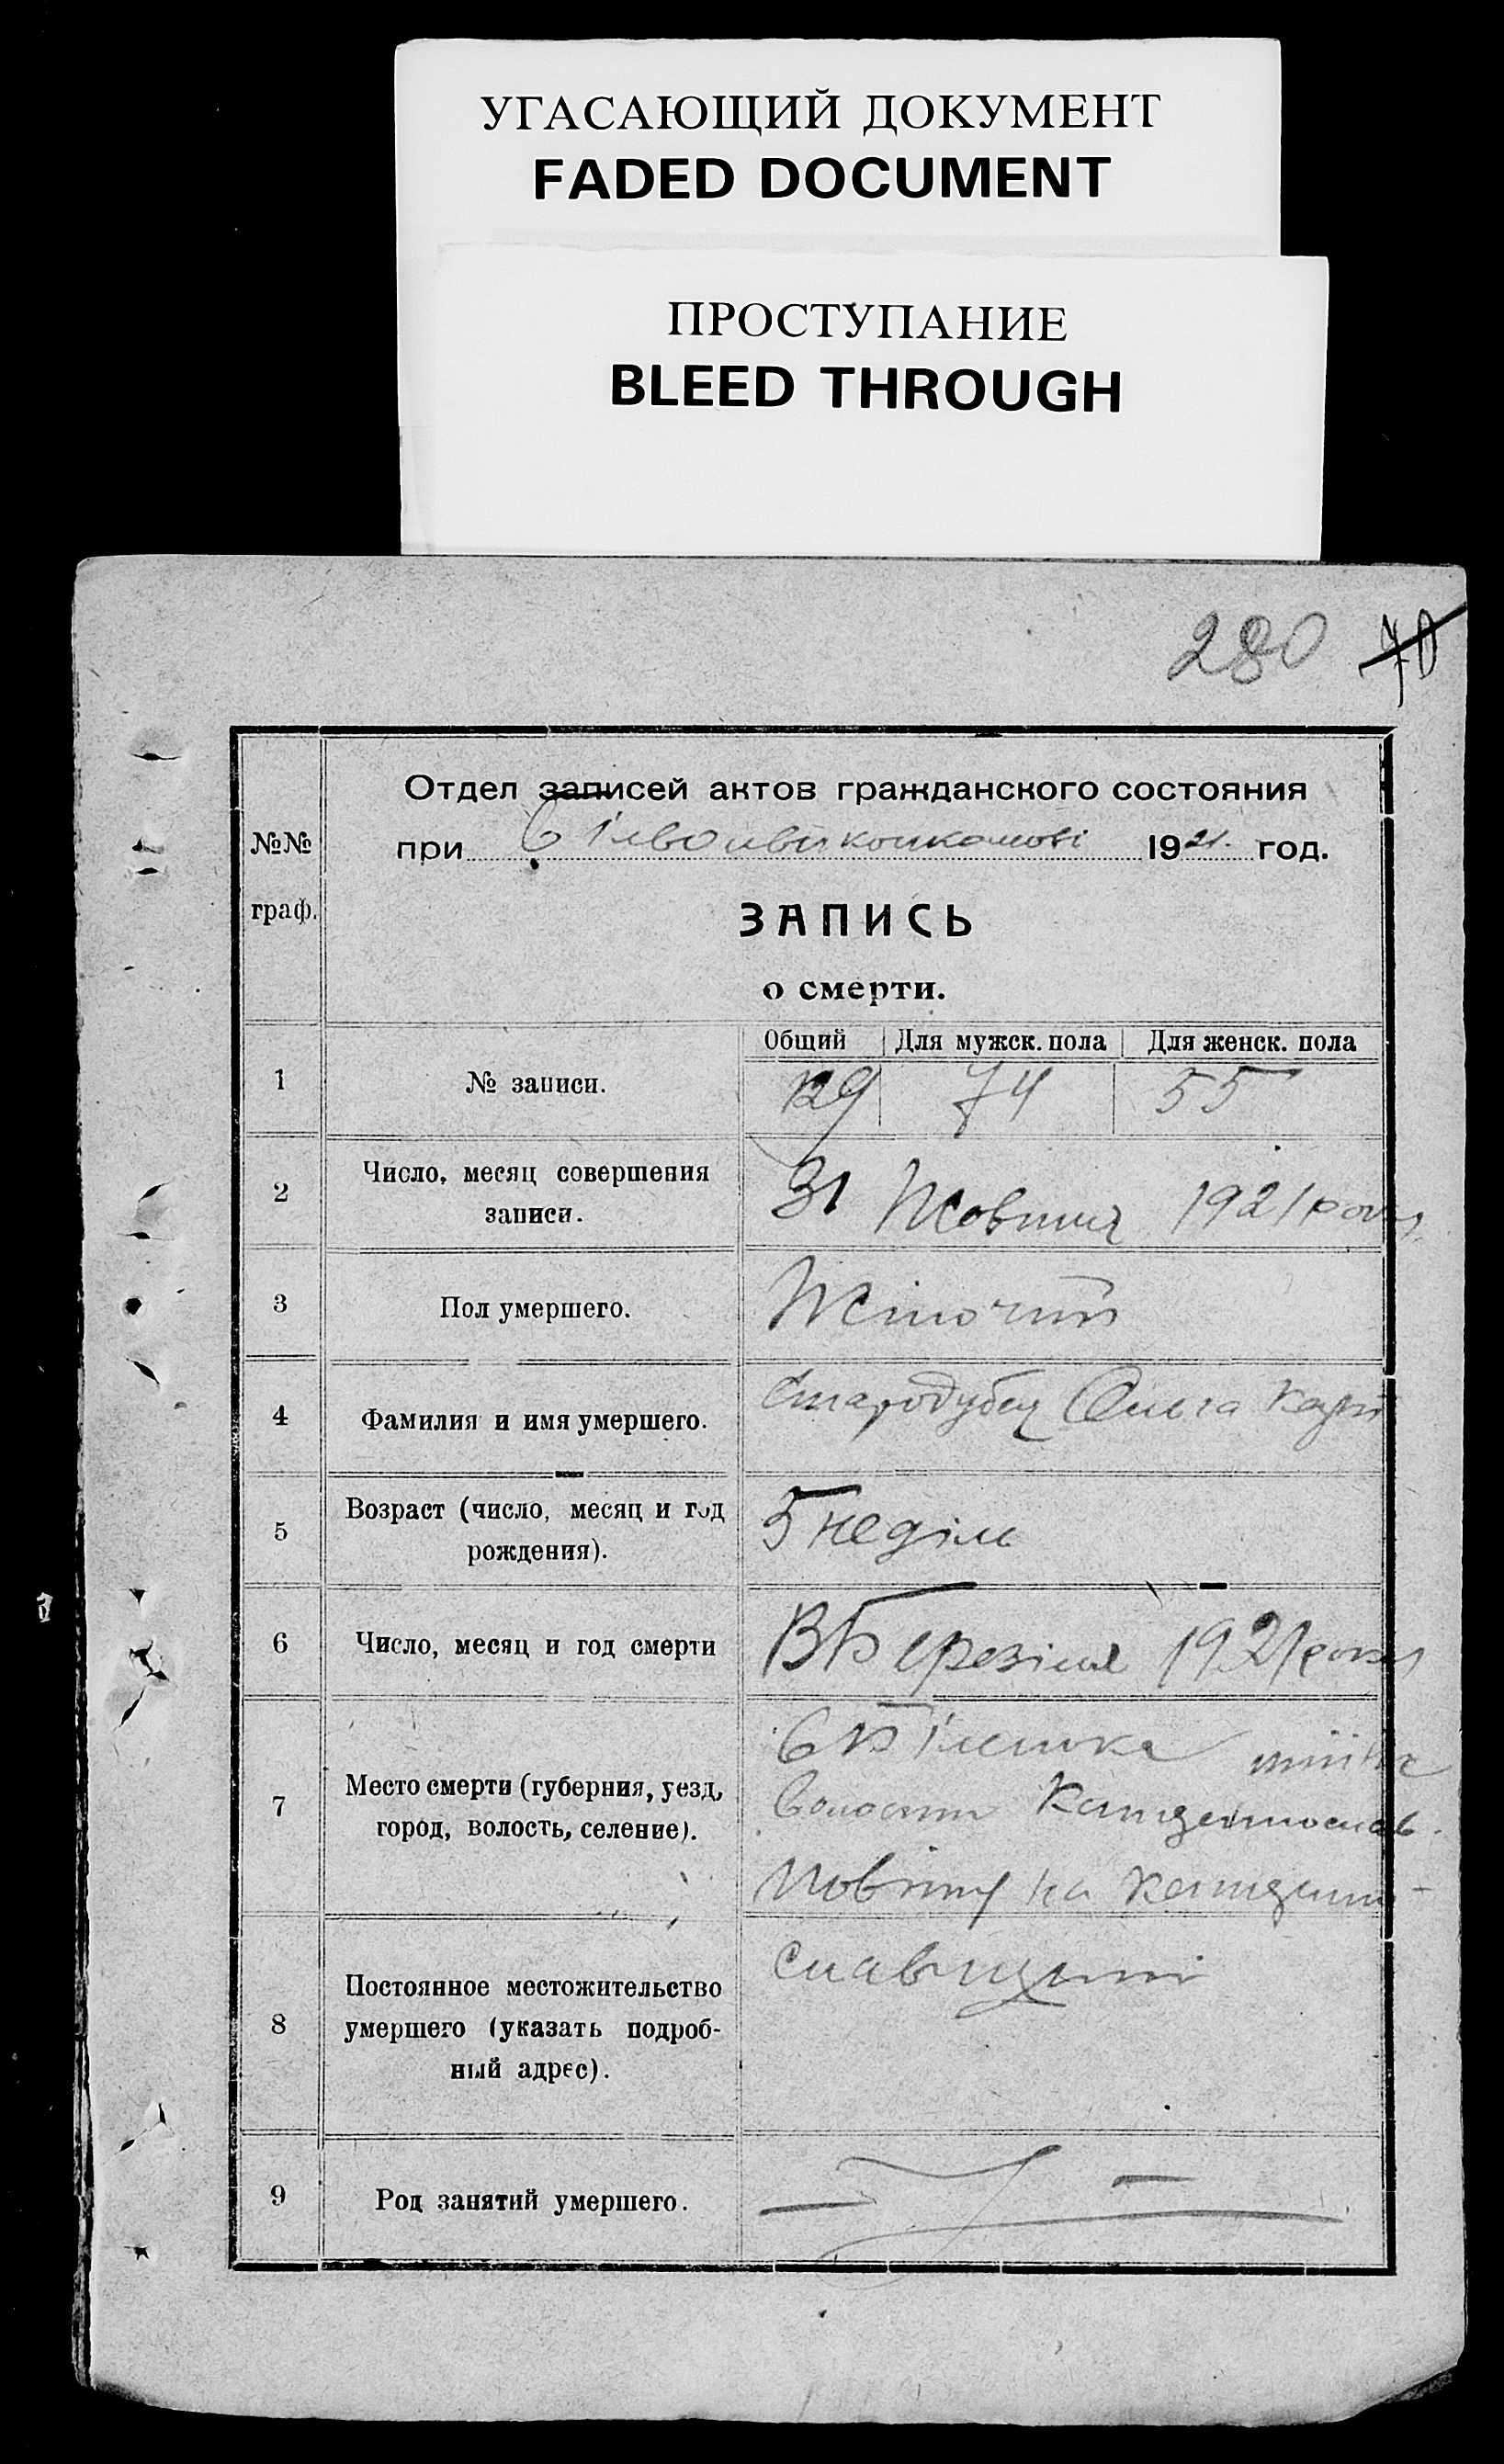 УГАСАЮЩИЙ ДОКУМЕНТ
FADED DOCUMENT
ПРОСТУПАНИЕ
BLEED THROUGH
280 70
Отдел записей актов гражданского состояния
при 1921 год.
№№
граф.
ЗАПИСЬ
о смерти.
Общий Для мужск. пола Для женск. пола
1 № записи. 129 74 55
2 Число, месяц совершения
записи. 31 Жовтня 1921 року
3 Пол умершего. Жіночий
4 Фамилия и имя умершего. Стародубец Ольга
5 Возраст (число, месяц и год
рождения). 5 неділь
6 Число, месяц и год смерти Березіля 1921 року
7 Место смерти (губерния, уезд,
город, волость, селение).
Волости
Повіту на
8 Постоянное местожительство
умершего (указать подроб-
ный адрес).
славщині
9 Род занятий умершего. —